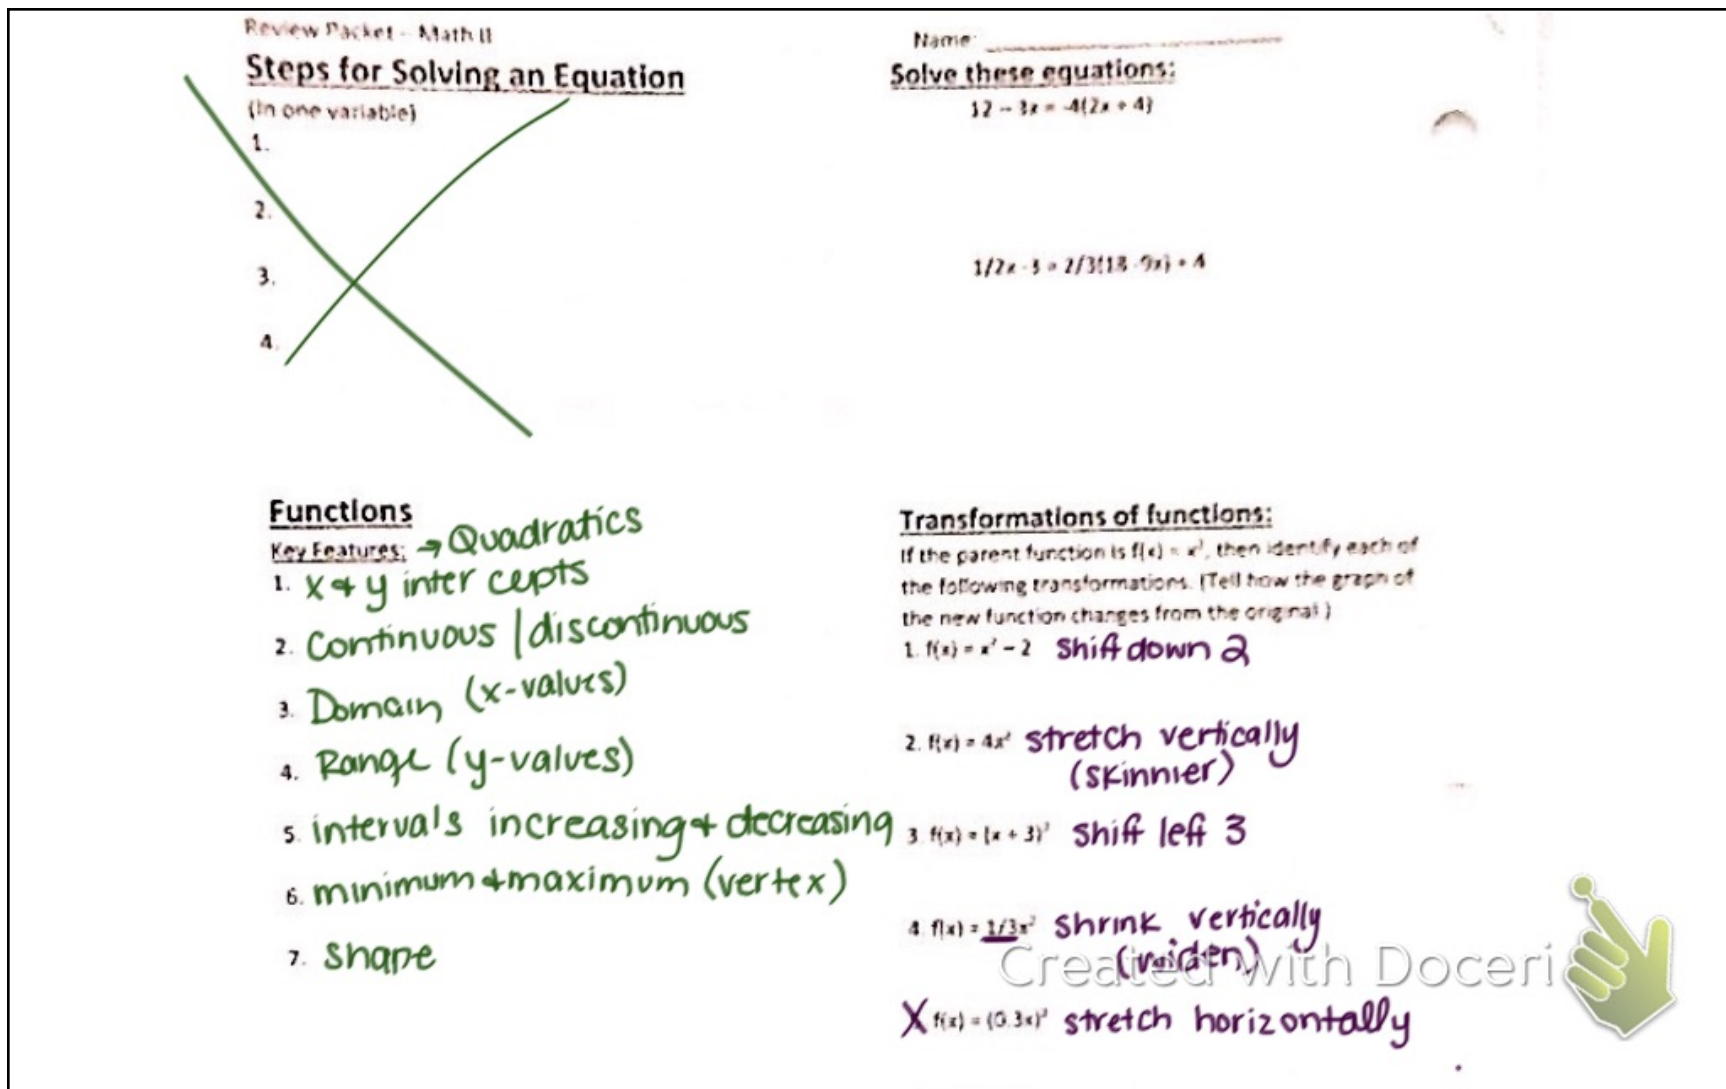 Review Packet - Math II
Steps for Solving an Equation
(In one variable)
1.
2.
3.
4.
Name: ____________________
Solve these equations:
12 - 3x = -4(2x + 4)
1/2x - 3 = 2/3(18 - 9x) + 4
Functions
Key Features: → Quadratics
1. x & y inter cepts
2. Continuous | discontinuous
3. Domain (x-values)
4. Range (y-values)
5. intervals increasing & decreasing
6. minimum & maximum (vertex)
7. shape
Transformations of functions:
If the parent function is f(x) = x², then identify each of
the following transformations. (Tell how the graph of
the new function changes from the original.)
1. f(x) = x² - 2 Shift down 2
2. f(x) = 4x² stretch vertically
(skinnier)
3. f(x) = (x + 3)² shift left 3
4. f(x) = 1/3x² shrink vertically
(widen)
X f(x) = (0.3x)² stretch horizontally
Created with Doceri